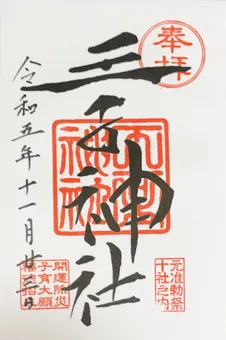 奉拝
元准勅祭
十社之内
王子神社
開運除災
子育大願
令和五年十一月廿日